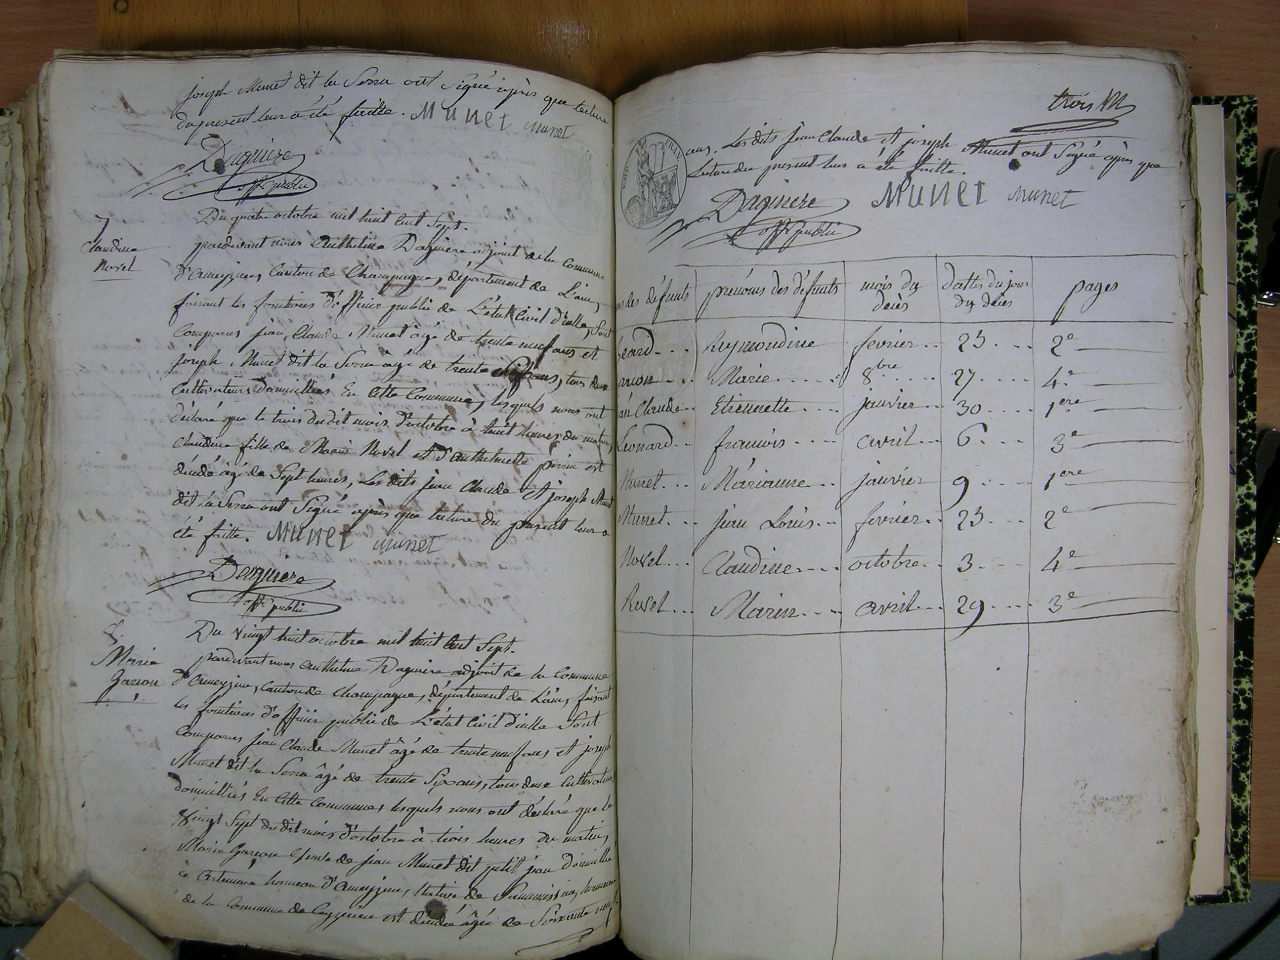 joseph Munet dit la Serra ont Signé après que lecture
du present leur a été faitte. Munet Munet
Daguiere
off. public
7
Claudine
Novel
Du quatre octobre mil huit cent Sept.
pardevant nous Anthelme Daguiere adjoint de la Commune
d'Ameyzieu, Canton de Champagne, département de L'ain,
faisant les fonctions d'officier public de L'état Civil d'icelle, Sont
Comparus jean Claude Munet âgé de trente neuf ans et
joseph Munet dit la Serra âgé de trente Six ans, tous deux
Cultivateurs domiciliés En Cette Commune, lesquels nous ont
déclaré que le trois du dit mois d'octobre à huit heures du matin,
Claudine fille de Novel et d'Anthelmette est
décédé âgé de Sept heures, Les dits jean Claude et joseph Munet
dit la Serra ont Signé après que lecture du present leur a
été faitte. Munet Munet
Daguiere
off. public
8
Marie
Garion
Du vingt huit octobre mil huit cent Sept.
pardevant nous Anthelme Daguiere adjoint de la Commune
d'Ameyzieu, Canton de Champagne, département de L'ain, faisant
les fonctions d'officier public de L'état Civil d'icelle Sont
Comparus jean Claude Munet âgé de trente neuf ans et joseph
Munet dit la Serra âgé de trente Six ans, tous deux Cultivateurs
domiciliés En Cette Commune, lesquels nous ont déclaré que le
vingt Sept du dit mois d'octobre à trois heures du matin,
Marie Garion de jean Munet dit petit jean domicilié
à hameau d'Ameyzieu, Native de hameau
de la Commune de Ceyzerieu est décédé âgée de Soixante
trois
ans, Les dits jean Claude et joseph Munet ont Signé après que
Lecture du present leur a été faitte.
Daguiere Munet Munet
off. public
des défunts prénoms des défunts mois du décès Dattes du jour du décès pages
Reymondine fevrier 23 2e
Marie 8bre 27 4e
Claude Etiennette janvier 30 1ere
Leonard francois avril 6 3e
Munet Marianne janvier 9 1ere
Munet jean Louis fevrier 23 2e
Novel Claudine octobre 3 4e
Revel Marin avril 29 3e